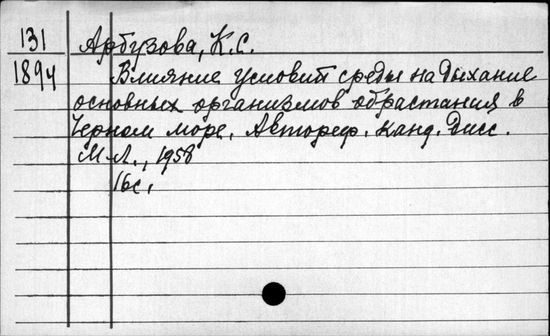 131 Арбузова, К.С.
1894 Влияние условий среды на дыхание
основных организмов обрастания в
Черном море. Автореф. канд. дисс.
М-Л., 1958
16с.